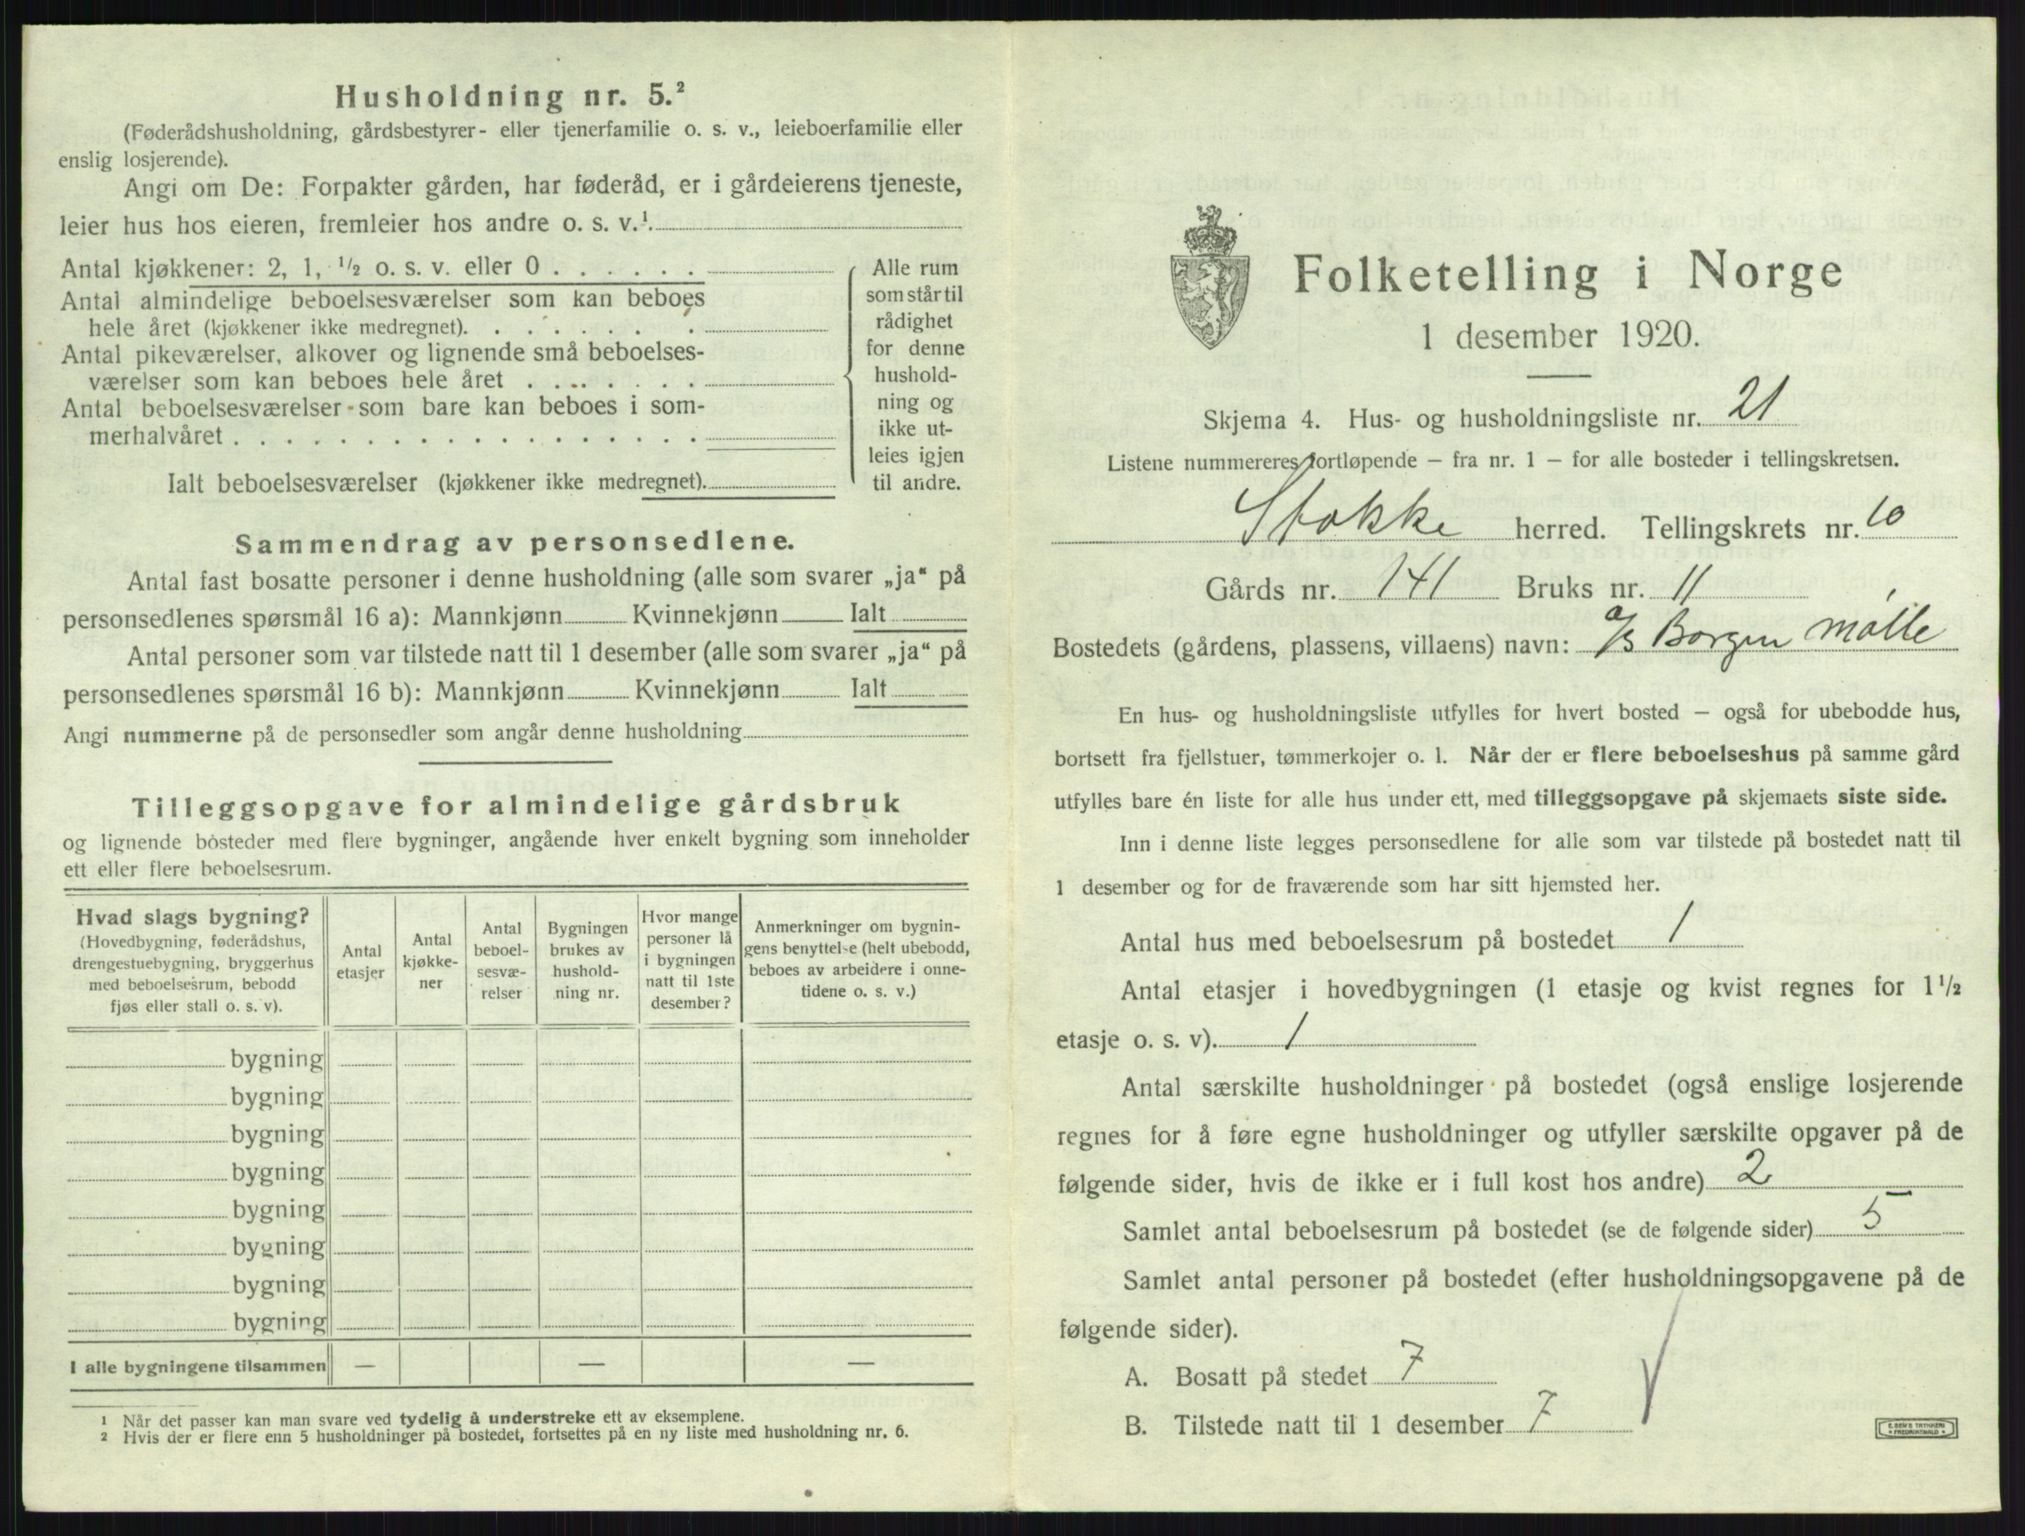 Husholdning nr. 5.²
(Føderådshusholdning, gårdsbestyrer- eller tjenerfamilie o. s. v., leieboerfamilie eller
enslig losjerende).
Angi om De: Forpakter gården, har føderåd, er i gårdeierens tjeneste,
leier hus hos eieren, fremleier hos andre o. s. v.¹
Antal kjøkkener: 2, 1, ½ o. s. v. eller 0 . . . . . .
Antal almindelige beboelsesværelser som kan beboes
hele året (kjøkkener ikke medregnet). . . . . . . . .
Antal pikeværelser, alkover og lignende små beboelses-
værelser som kan beboes hele året . . . . . . .
Antal beboelsesværelser som bare kan beboes i som-
merhalvåret . . . . . . . . . . . . . . . . . .
Ialt beboelsesværelser (kjøkkener ikke medregnet).
Alle rum
som står til
rådighet
for denne
hushold-
ning og
ikke ut-
leies igjen
til andre.
Sammendrag av personsedlene.
Antal fast bosatte personer i denne husholdning (alle som svarer „ja“ på
personsedlenes spørsmål 16 a): Mannkjønn Kvinnekjønn Ialt
Antal personer som var tilstede natt til 1 desember (alle som svarer „ja“ på
personsedlenes spørsmål 16 b): Mannkjønn Kvinnekjønn Ialt
Angi nummerne på de personsedler som angår denne husholdning
Tilleggsopgave for almindelige gårdsbruk
og lignende bosteder med flere bygninger, angående hver enkelt bygning som inneholder
ett eller flere beboelsesrum.
Hvad slags bygning?
(Hovedbygning, føderådshus,
drengestuebygning, bryggerhus
med beboelsesrum, bebodd
fjøs eller stall o. s. v).
Antal
etasjer
Antal
kjøkke-
ner
Antal
beboel-
sesvæ-
relser
Bygningen
brukes av
hushold-
ning nr.
Hvor mange
personer lå
i bygningen
natt til 1ste
desember?
Anmerkninger om bygnin-
gens benyttelse (helt ubebodd,
beboes av arbeidere i onne-
tidene o. s. v.)
bygning
bygning
bygning
bygning
bygning
bygning
bygning
bygning
I alle bygningene tilsammen — — —
¹ Når det passer kan man svare ved tydelig å understreke ett av eksemplene.
² Hvis der er flere enn 5 husholdninger på bostedet, fortsettes på en ny liste med husholdning nr. 6.
Folketelling i Norge
1 desember 1920.
Skjema 4. Hus- og husholdningsliste nr. 21
Listene nummereres fortløpende — fra nr. 1 — for alle bosteder i tellingskretsen.
Stokke herred. Tellingskrets nr. 10
Gårds nr. 141 Bruks nr. 11
Bostedets (gårdens, plassens, villaens) navn: a/s Borgen mølle
En hus- og husholdningsliste utfylles for hvert bosted — også for ubebodde hus,
bortsett fra fjellstuer, tømmerkojer o. l. Når der er flere beboelseshus på samme gård
utfylles bare én liste for alle hus under ett, med tilleggsopgave på skjemaets siste side.
Inn i denne liste legges personsedlene for alle som var tilstede på bostedet natt til
1 desember og for de fraværende som har sitt hjemsted her.
Antal hus med beboelsesrum på bostedet 1
Antal etasjer i hovedbygningen (1 etasje og kvist regnes for 1½
etasje o. s. v). 1
Antal særskilte husholdninger på bostedet (også enslige losjerende
regnes for å føre egne husholdninger og utfyller særskilte opgaver på de
følgende sider, hvis de ikke er i full kost hos andre) 2
Samlet antal beboelsesrum på bostedet (se de følgende sider) 5
Samlet antal personer på bostedet (efter husholdningsopgavene på de
følgende sider).
A. Bosatt på stedet 7
B. Tilstede natt til 1 desember 7
E. SEM'S TRYKKERI
FREDRIKSHALD